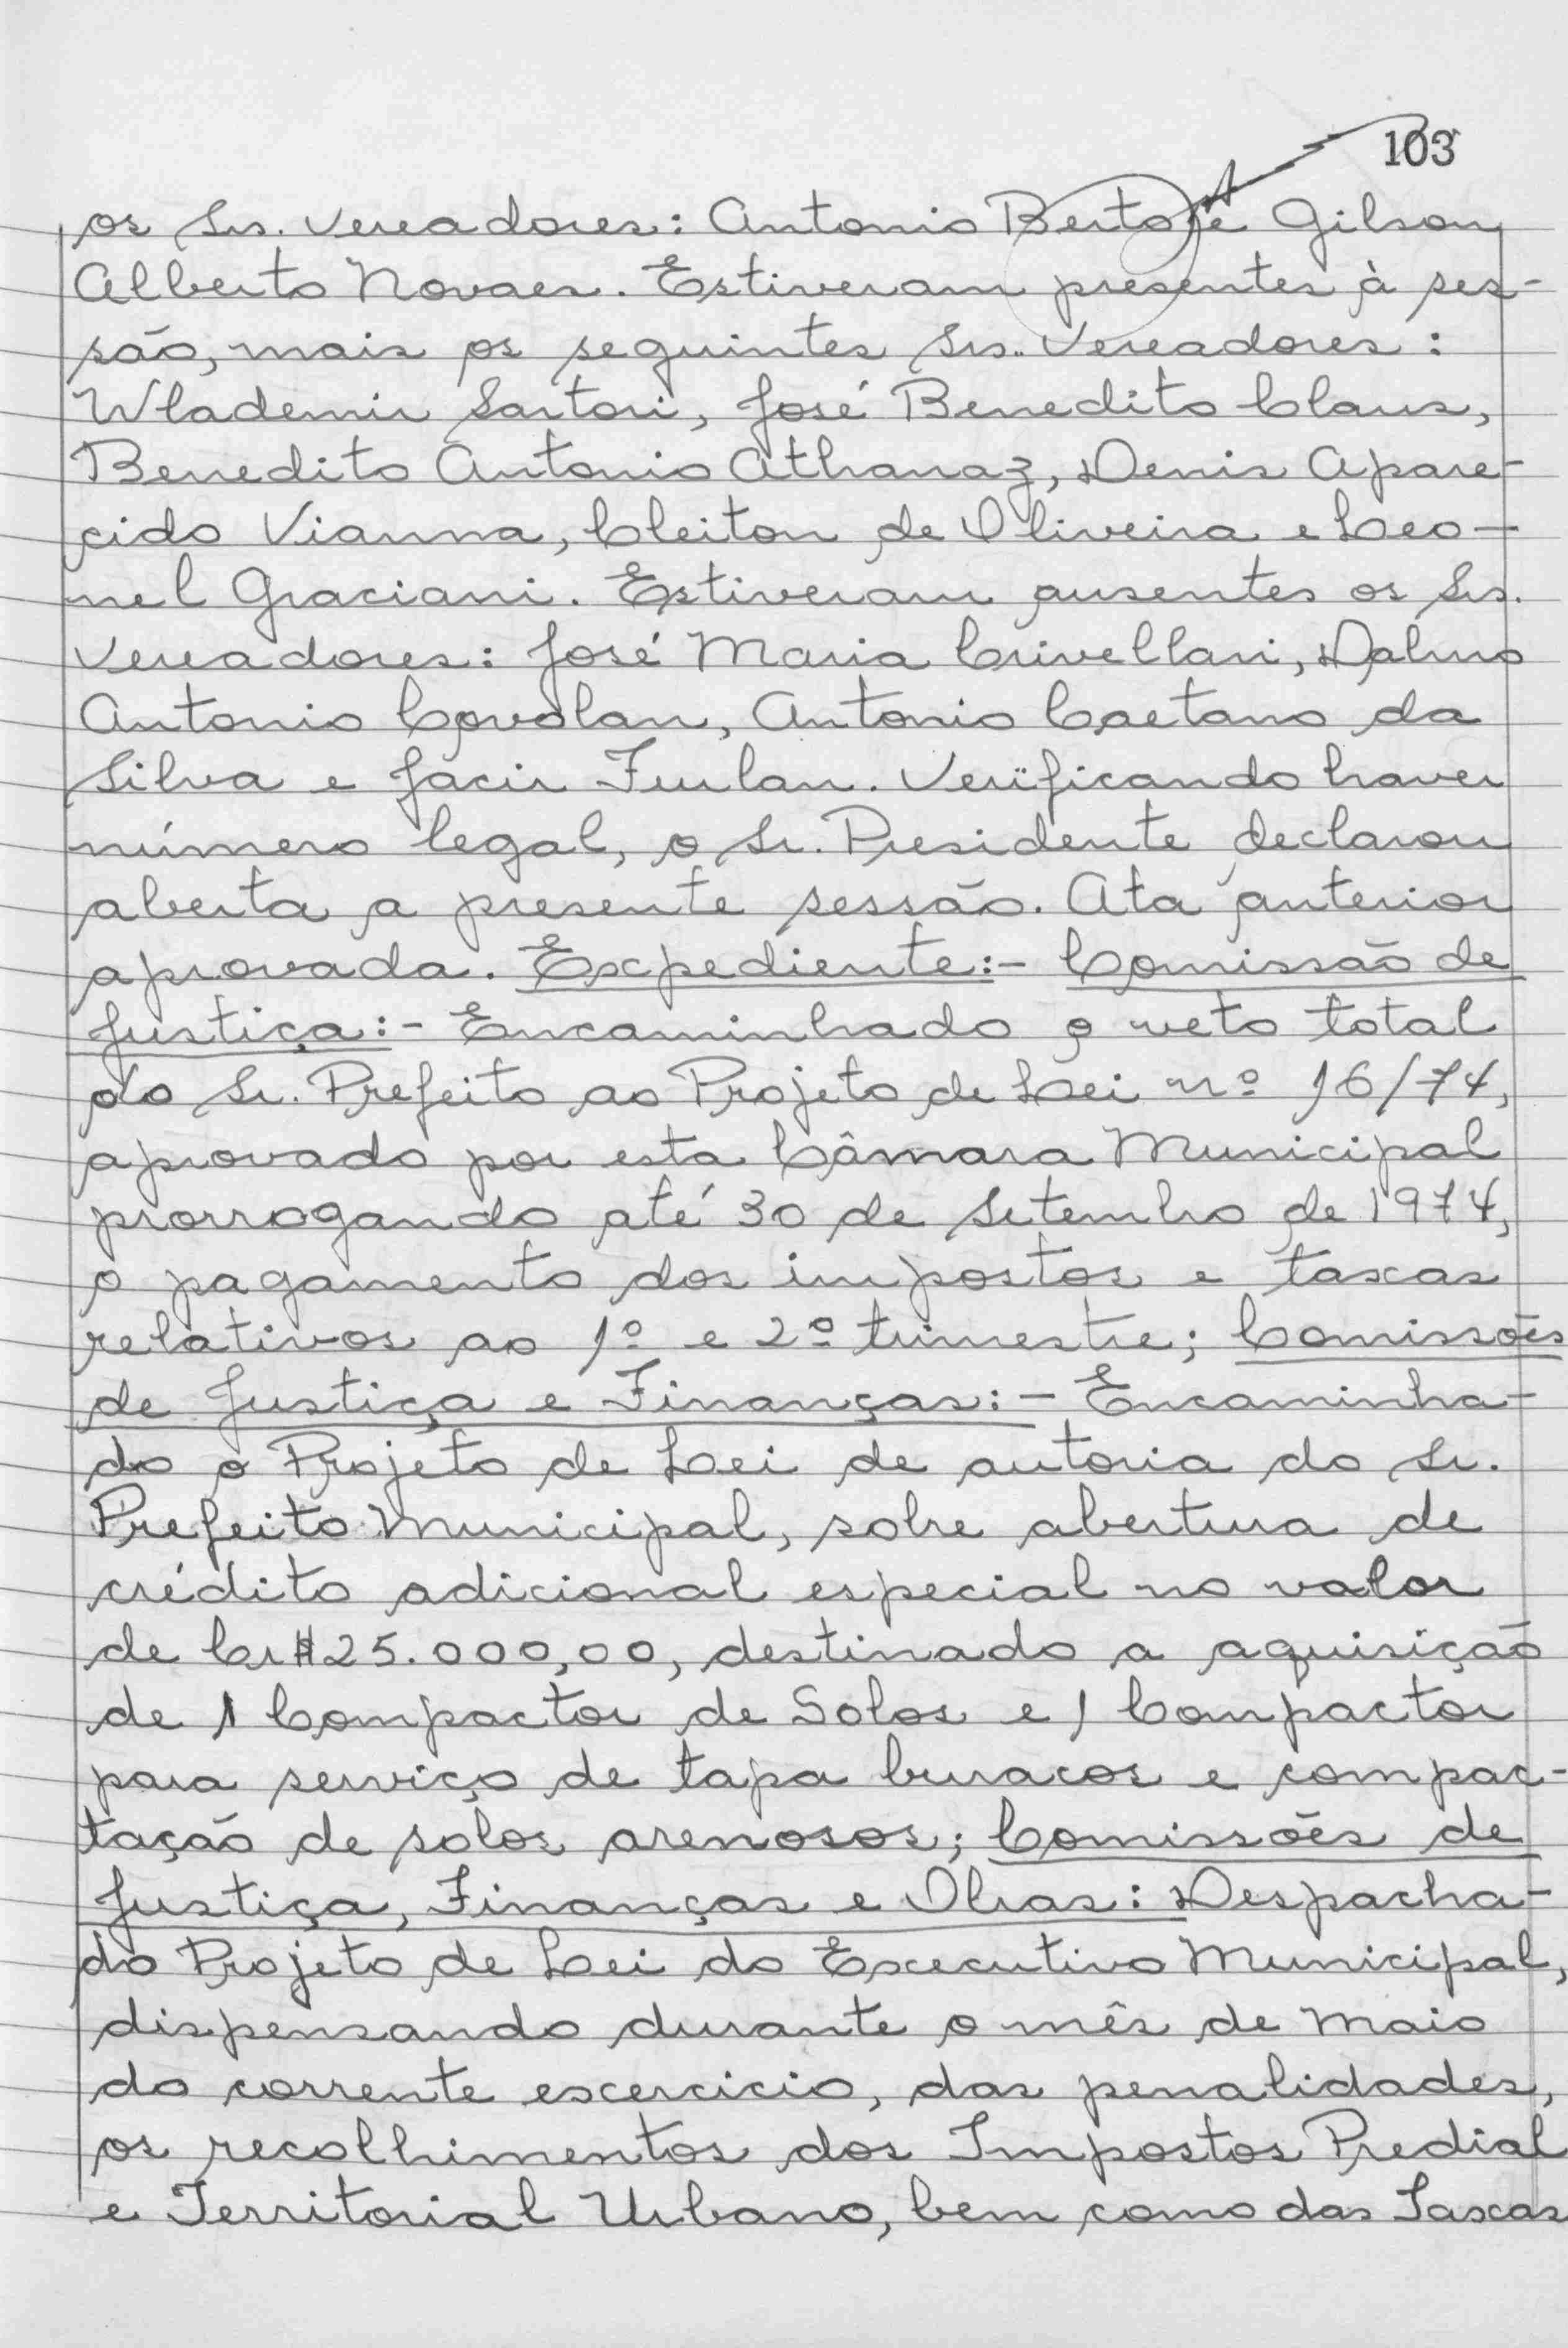 103
os Srs. Vereadores: Antonio Berto e Gilson
Alberto Novaes. Estiveram presentes à ses-
são, mais os seguintes Srs. Vereadores:
Wlademir Sartori, José Benedito Claus,
Benedito Antonio Athanaz, Denis Apare-
cido Vianna, Cleiton de Oliveira e Leo-
nel Graciani. Estiveram ausentes os Srs.
Vereadores: José Maria Crivellari, Dalmo
Antonio Covolan, Antonio Caetano da
Silva e Jacir Furlan. Verificando haver
número legal, o Sr. Presidente declarou
aberta a presente sessão. Ata anterior
aprovada. Expediente:- Comissão de
Justiça:- Encaminhado o veto total
do Sr. Prefeito ao Projeto de Lei nº 16/74,
aprovado por esta Câmara Municipal
prorrogando até 30 de Setembro de 1974,
o pagamento dos impostos e taxas
relativos ao 1º e 2º trimestre; Comissões
de Justiça e Finanças:- Encaminha-
do o Projeto de Lei de autoria do Sr.
Prefeito Municipal, sobre abertura de
crédito adicional especial no valor
de Cr$25.000,00, destinado a aquisição
de 1 Compactor de Solos e 1 Compactor
para serviço de tapa buracos e compac-
tação de solos arenosos; Comissões de
Justiça, Finanças e Obras: Despacha-
do Projeto de Lei do Executivo Municipal,
dispensando durante o mês de maio
do corrente excercicio, das penalidades,
os recolhimentos dos Impostos Predial
e Territorial Urbano, bem como das Taxas